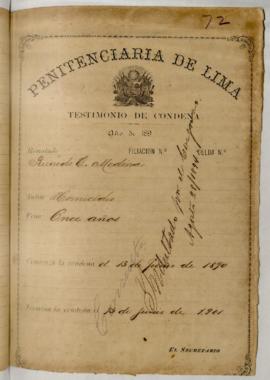 72
PENITENCIARIA DE LIMA
TESTIMONIO DE CONDENA
Año de 189
Rematado
FILIACION N.º
CELDA N.º
C. Medina
Delito Homicidio
Pena Once años
Comienza la condena el 13 de Junio de 1890
Termina la condena el 13 de Junio de 1901
EL SECRETARIO